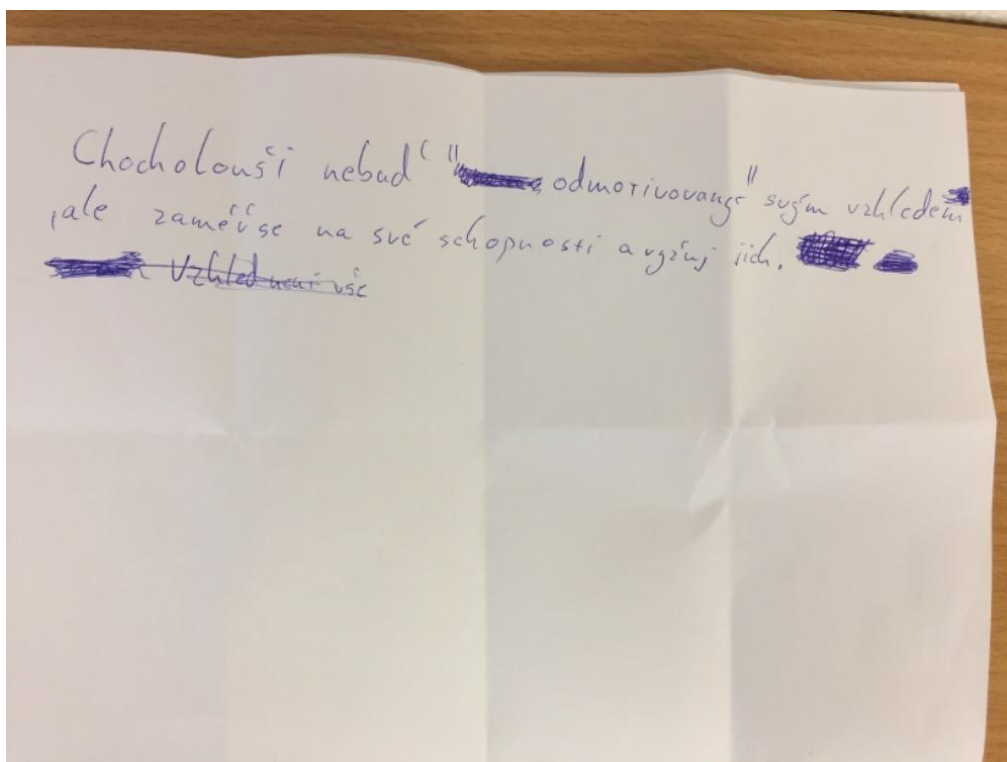 Chocholouši nebuď " odmotivovaný" svým vzhledem
,ale zaměř se na své schopnosti a využij jich.
Vzhled není vše